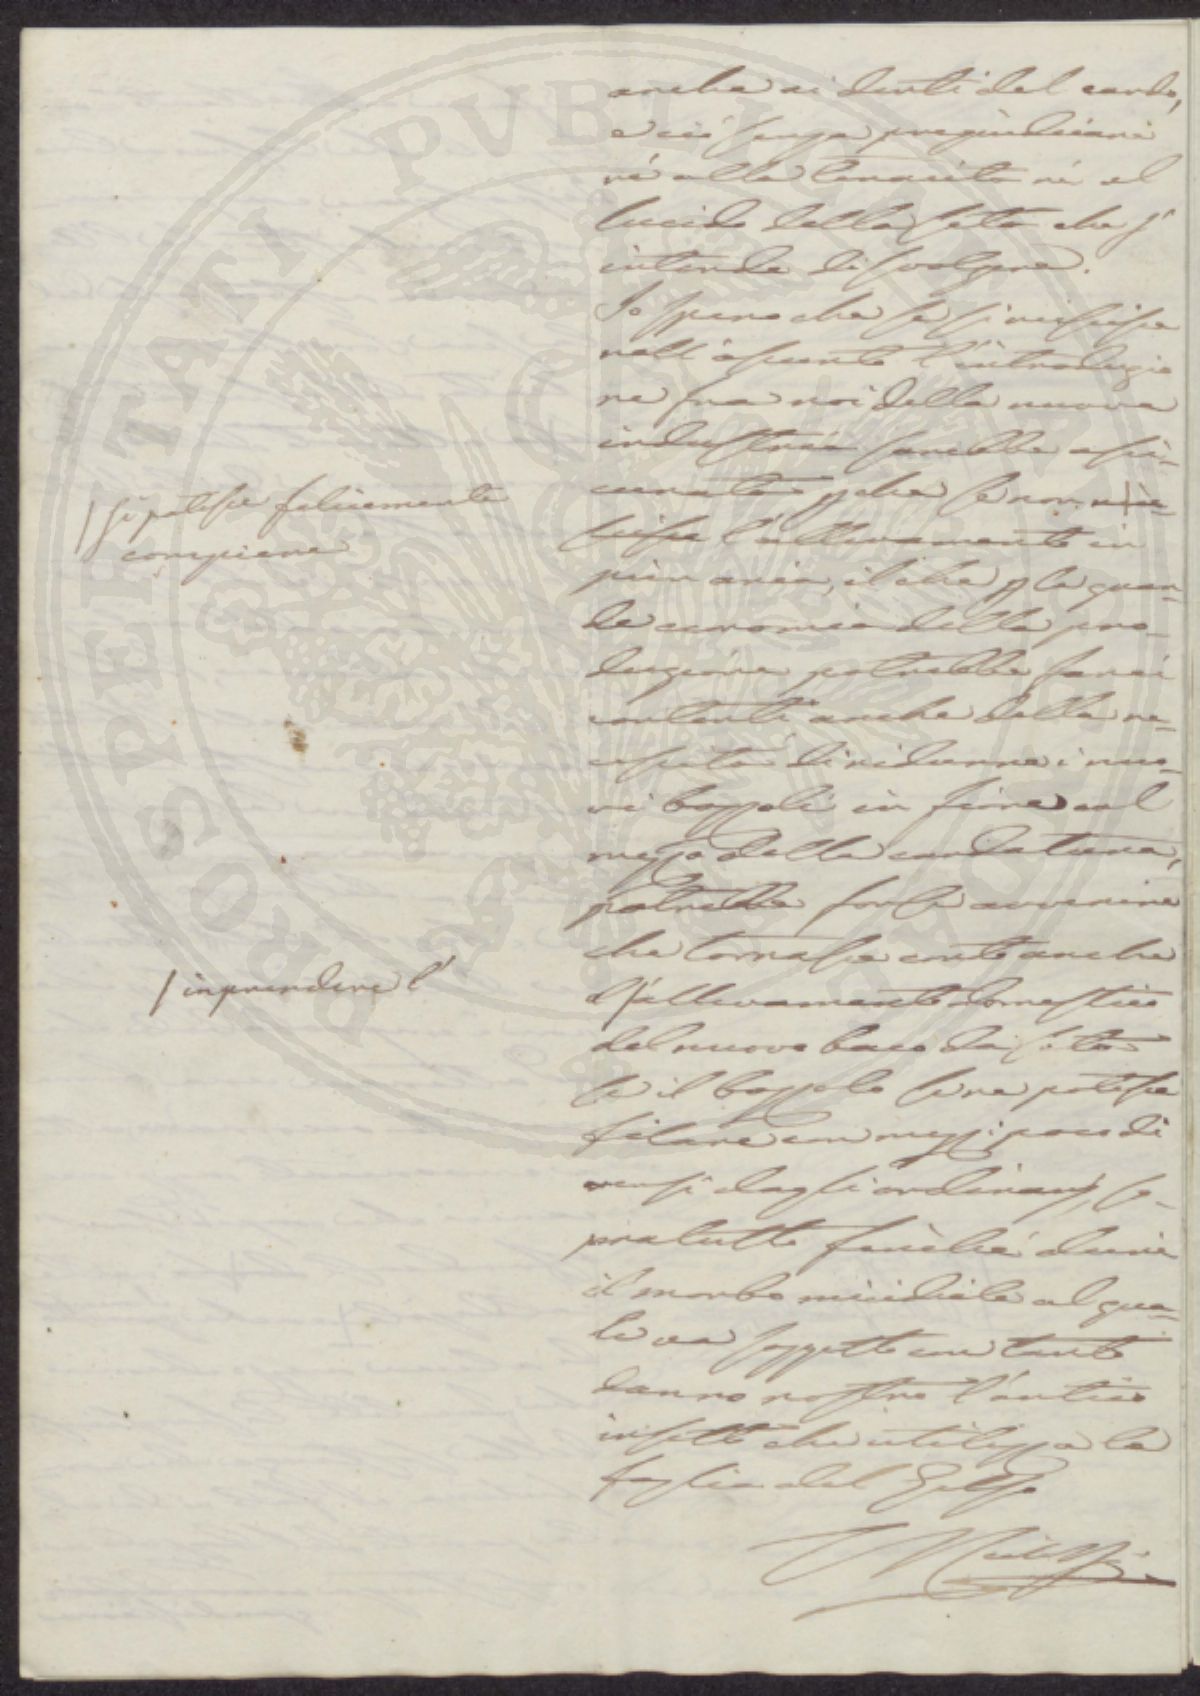 anche ai denti del cardo,
e ciò senza pregiudicare
nè alla tenacità nè al
lucido della seta che s'
intende disvolgere.
Io spero che se si riuscisse
nell'assunto l'introduzio
ne fra noi della nuova
industria sarebbe assi-
curata, che se non
l'allevamento in
pien aria, il che la gran-
de economia della pro-
duzione potrebbe farci
contenti anche della ne-
cessità di ridurre i nuo-
vi bozzoli in fiore col
mezzo della cardatura,
potrebbe forse avvenire
che tornasse conto anche
l'allevamento domestico
del nuovo baco da seta
se il bozzolo se ne potesse
filare con mezzi poco di
versi dagli ordinarj, so-
pratutto finchè dura
il morbo micidiale al qua-
le va soggetto con tanto
danno nostro l'antico
insetto che utilizza la
foglia del Gelso
/ si potesse felicemente
compiere
/ imprendere l'
PROSPERITATI PVBLICAE